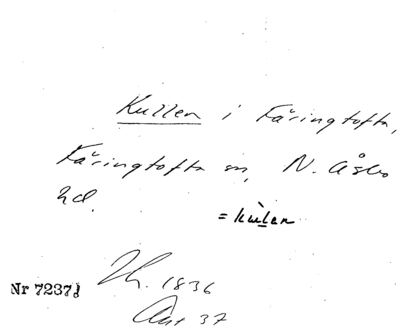 Kullen i Färingtofta,
Färingtofta sn, N. Åsbo
hd.
= kùlen
Nr 7237
Th. 1836
Ant 37